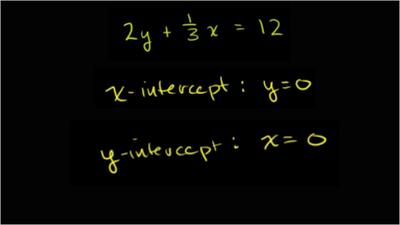 2y + 1/3 x = 12
x-intercept : y=0
y-intercept : x= 0